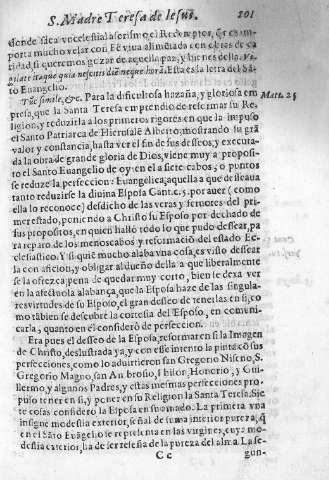 S. Madre Teresa de Iesus. 201
porta mucho velar con Fè viua alimentada con obras de ca
ridad, si queremos gozar de aquella paz, y bienes della. Vi
gilate itaque quia nescitis diem neque horã. Esta es la letra del Sã
to Euangelio.
Tũc simile, &c. Para la dificultosa hazaña, y gloriosa em Matt. 25
presa, que la Santa Teresa emprendio de reformar su Re-
ligion, y reduzirla a los primeros rigores en que la impuso
el Santo Patriarca de Hierusalẽ Alberto; mostrando su grã
valor y constancia, hasta ver el fin de sus deseos, y executa-
da la obra de grande gloria de Dios, viene muy a proposi-
to el Santo Euangelio de oy: en el a siete cabos, o puntos
se reduze la perfeccion Euangelica, aquella a que deseaua
tanto reduzirse la diuina Esposa Cant. c. 5. por auer (como
ella lo reconoce) desdicho de las veras y feruores del pri-
mer estado, poniendo a Christo su Esposo por dechado de
sus propositos, en quien hallò todo lo que pudo desear, pa
ra reparo de los menoscabos y reformaciõ del estado Ec-
clesiastico. Y si quiẽ mucho alaba vna cosa, es visto desear
la con aficion, y obligar al dueño della a que liberalmente
se la ofrezca; pena de quedar muy corto, bien se dexa ver
en la afectuosa alabança, que la Esposa haze de las singula-
res virtudes de su Esposo, el gran deseo de tenerlas en si, co
mo tãbien se descubre la cortesia del Esposo, en comuni-
carla, quanto en el considerò de perfeccion.
Era pues el desseo de la Esposa, reformar en si la Imagen
de Christo, deslustrada ya, y con este intento la pinta cõ sus
perfecciones, como lo aduirtieron san Gregorio Niseno, S.
Gregorio Magno, san Ambrosio, Honorio, y Gui-
llermo, y algunos Padres, y estas mesmas perfecciones pro
puso tener en si, y poner en su Religion la Santa Teresa. Sie
te cosas considero la Esposa en su amado: La primera vna
insigne modestia exterior, señal de suma interior pureza, q̃
en el Sãto Euãgelio se representa en las virgines, cuya mo-
destia exterior, ha de ser resseña de la pureza del alma. La se-
C c gun-